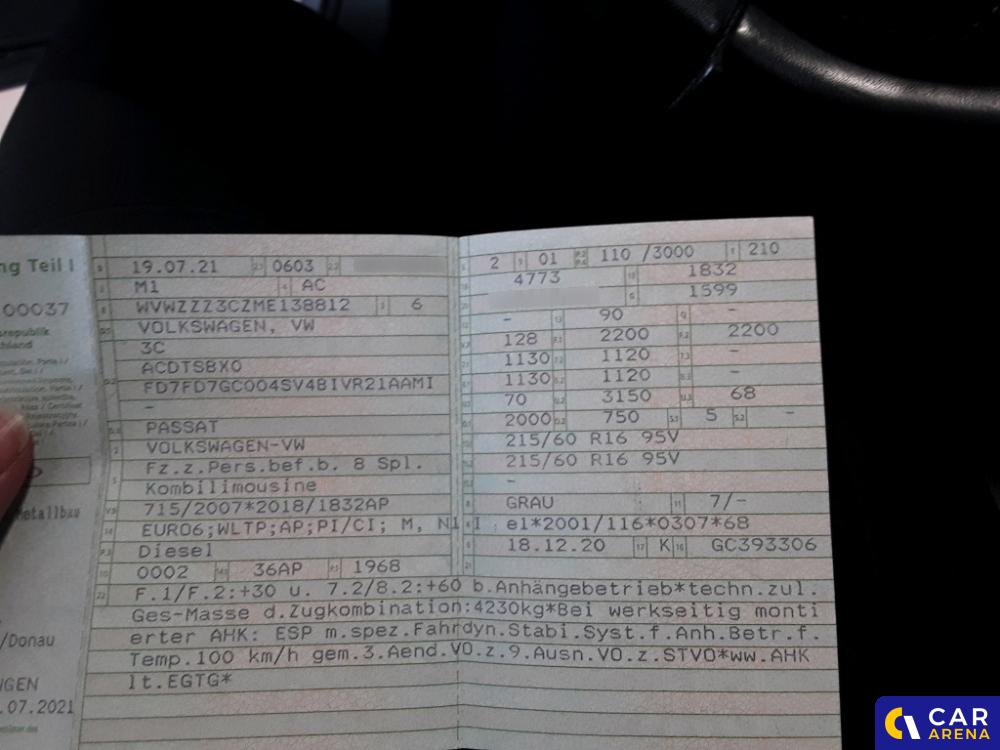 ng Teil I
00037
srepublik
hland
Metallbau
/Donau
NGEN
.07.2021
19.07.21 0603
M1 AC
WVWZZZ3CZME138812 6
VOLKSWAGEN, VW
3C
ACDTSBX0
FD7FD7GC004SV4BIVR21AAMI
-
PASSAT
VOLKSWAGEN-VW
Fz.z.Pers.bef.b. 8 Spl.
Kombilimousine
715/2007*2018/1832AP
EURO6;WLTP;AP;PI/CI; M, N1 I
Diesel
0002 36AP 1968
2 01 110 /3000 210
4773 1832
1599
- 90 -
128 2200 2200
1130 1120 -
1130 1120 -
70 3150 68
2000 750 5 -
215/60 R16 95V
215/60 R16 95V
-
GRAU 7/-
e1*2001/116*0307*68
18.12.20 K GC393306
22 F.1/F.2:+30 u. 7.2/8.2:+60 b.Anhängebetrieb*techn.zul.
Ges-Masse d.Zugkombination:4230kg*Bei werkseitig monti
erter AHK: ESP m.spez.Fahrdyn.Stabi.Syst.f.Anh.Betr.f.
Temp.100 km/h gem.3.Aend.VO.z.9.Ausn.VO.z.STVO*ww.AHK
lt.EGTG*
CAR
ARENA